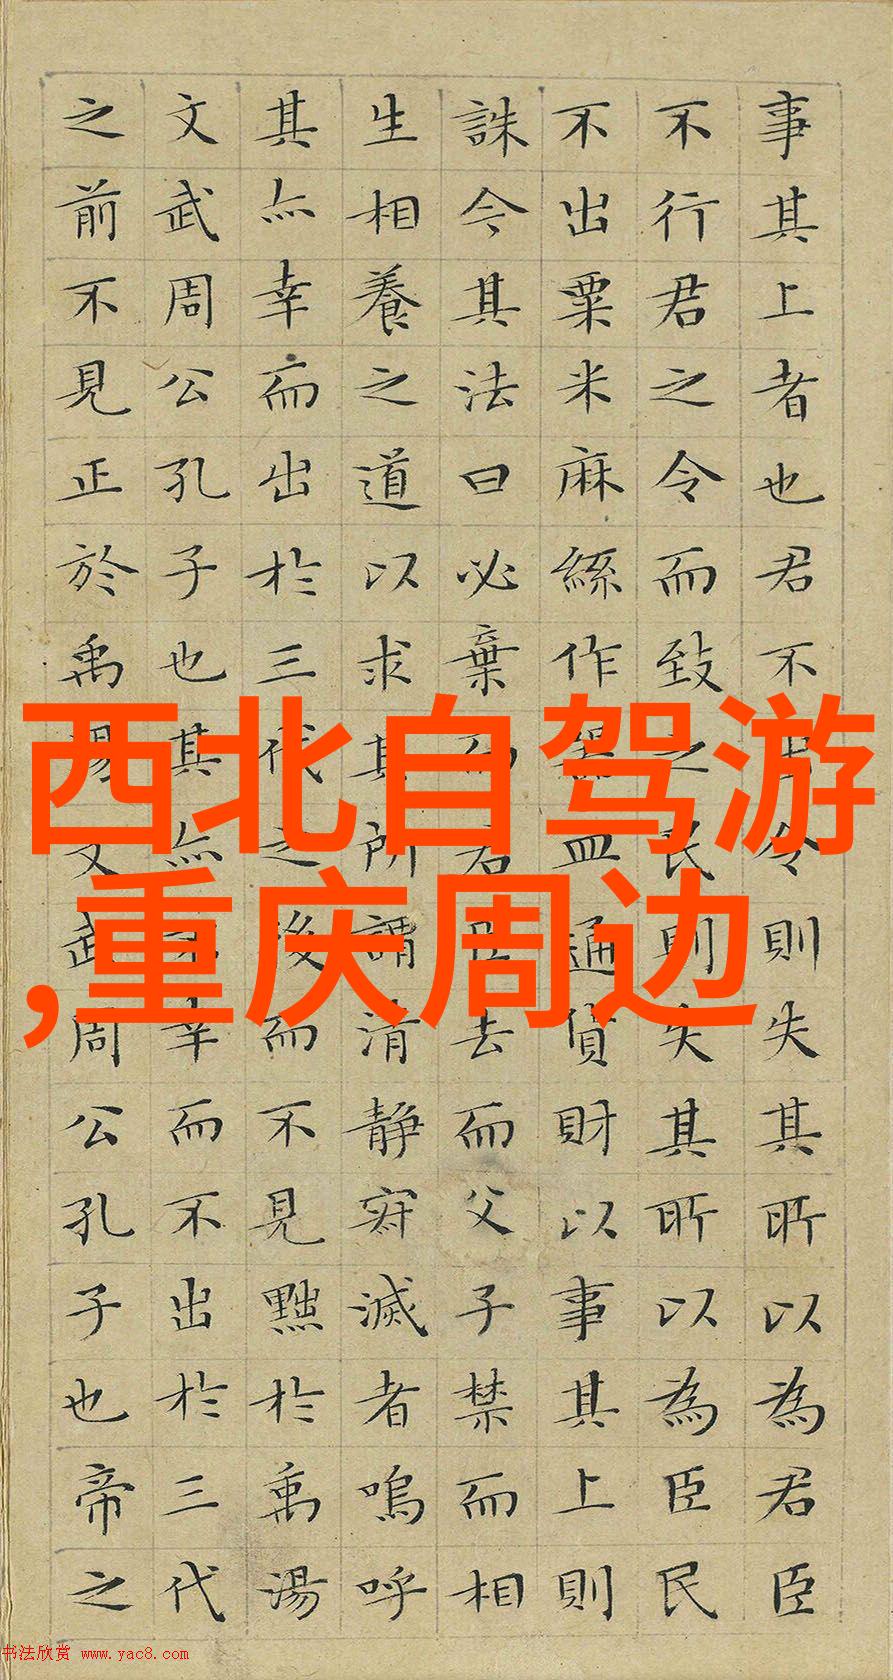 事其上者也君不出令則失其所以為君臣
不行君之令而致之民則失其所以為臣民
不出粟米麻絲作器皿通貨財以事其上則
誅今其法曰必棄而君臣去而父子禁而相
生相養之道以求其所謂清静寂滅者嗚呼
其亦幸而出於三代之後而不見黜於禹湯
文武周公孔子也其亦不幸而不出於三代
之前不見正於禹湯文武周公孔子也帝之
西北自驾游
,重庆周边
书法欣赏 www.yac8.com